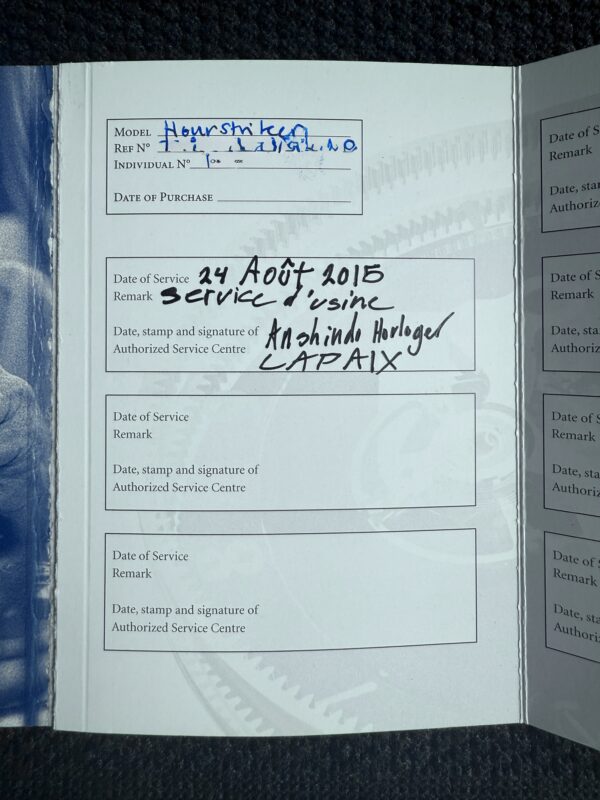 MODEL Hourstriker
REF N°
INDIVIDUAL N°
DATE OF PURCHASE
Date of Service 24 Août 2015
Remark Service d'usine
Date, stamp and signature of Anshindo Horloger
Authorized Service Centre LAPAIX
Date of Service
Remark
Date, stamp and signature of
Authorized Service Centre
Date of Service
Remark
Date, stamp and signature of
Authorized Service Centre
Date of S
Remark
Date, sta
Authoriz
Date of S
Remark
Date, sta
Authoriz
Date of S
Remark
Date, sta
Authoriz
Date of S
Remark
Date, sta
Authoriz